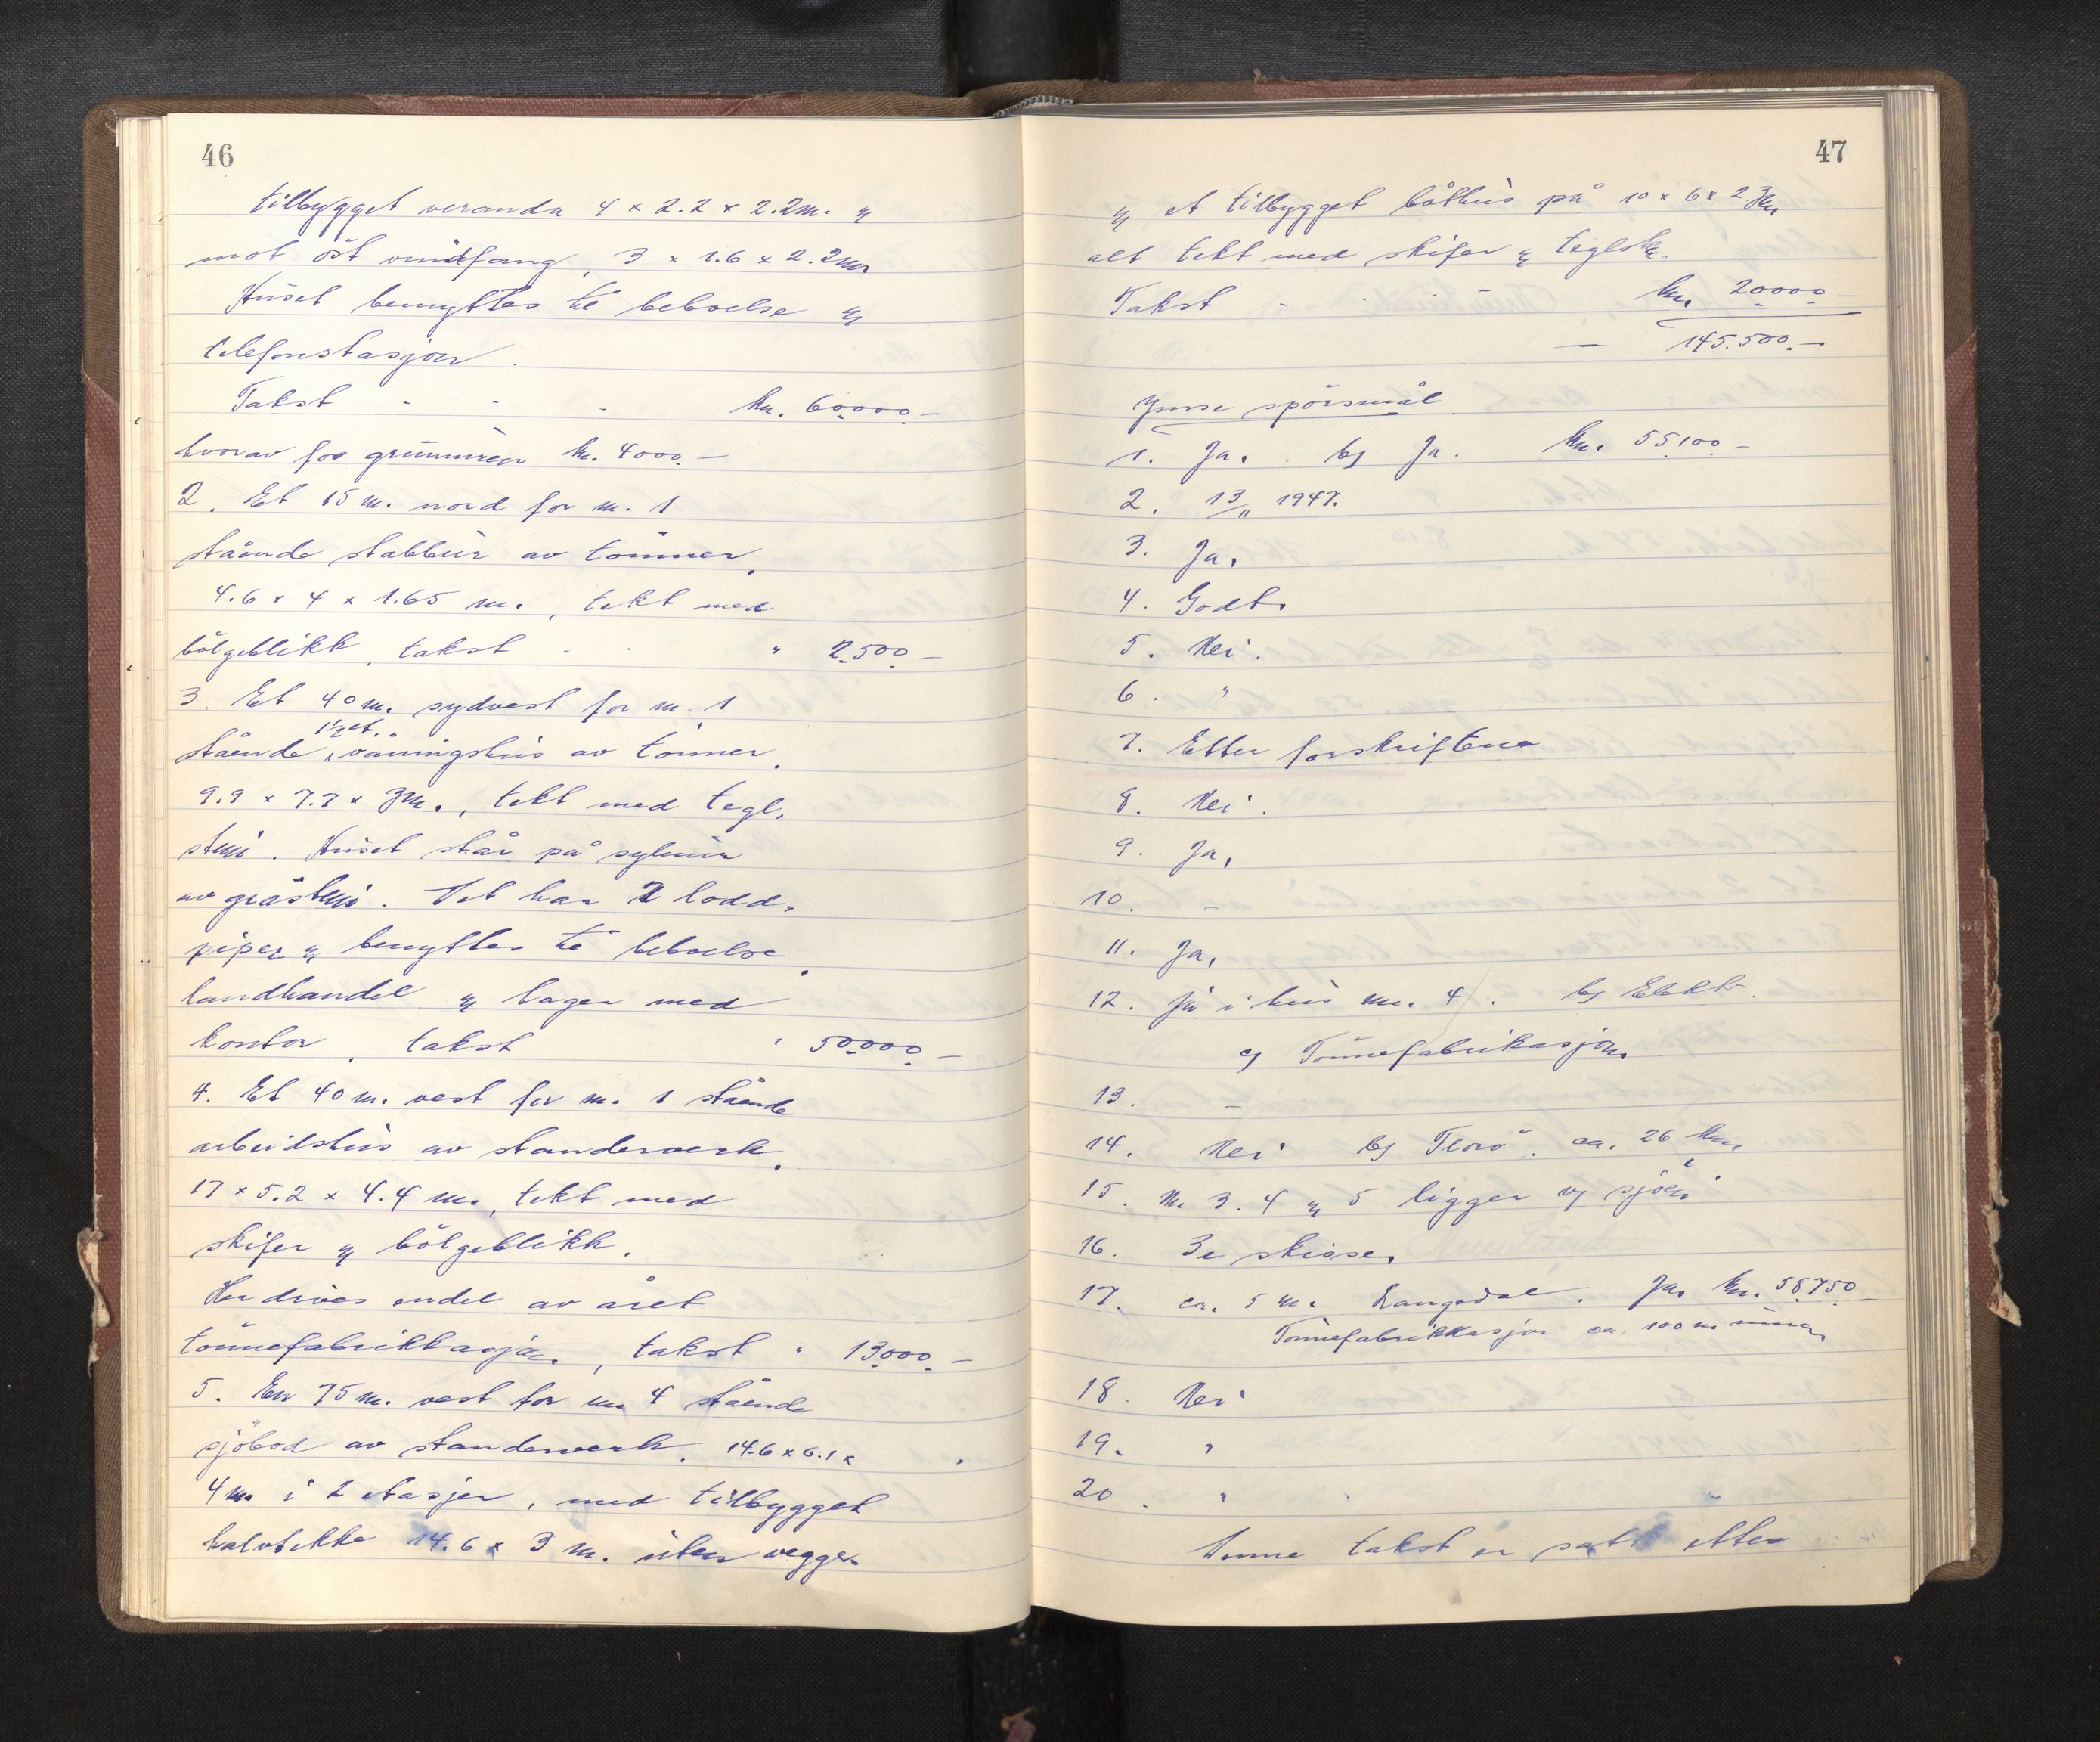 46
tilbygget veranda 4 x 2.2 x 2.2m. og
mot öst vindfang, 3 x 1.6 x 2.2m
Huset benyttes til beboelse og
telefonstasjon.
Takst - - - kr. 60000.-
hvorav for grunnmuren kr. 4000.-
2. Et 15 m. nord for nr. 1
stående stabbur av tömmer,
4.6 x 4 x 1.65 m., tekt med
bölgeblikk, takst - - " 2.500.-
3. Et 40 m. sydvest for nr. 1
stående 1½ et. våningshus av tömmer,
9.9 x 7.7 x 3m., tekt med tegl-
stein. Huset står på sylmur
av gråstein. Det har 2 lodd-
piper og benyttes til beboelse,
landhandel og lager med
kontor, takst " 50000.-
4. Et 40 m. vest for nr. 1 stående
arbeidshus av standerverk,
17 x 5.2 x 4.4 m., tekt med
skifer og bölgeblikk.
Her drives endel av året
tönnefabrikkasjon, takst " 13000.-
5. En 75 m. vest for nr. 4 stående
sjöbod av standerverk, 14.6 x 6.1 x
4m. i 2 etasjer, med tilbygget
halvtekke 14.6 x 3 m. uten vegger
47
og et tilbygget båthus på 10 x 6 x 2.3m
alt tekt med skifer og teglst.
Takst - - - kr. 20000.-
— 145.500.-
Ymse spörsmål
1. Ja. b) Ja. kr. 55100.-
2. 13/11 1947.
3. Ja.
4. Godt.
5. Nei.
6. "
7. Etter forskriftene
8. Nei.
9. Ja.
10. -
11. Ja.
12. Ja i hus nr. 4. b) Elektr.
c) Tönnefabrikasjon.
13. -
14. Nei b) Florö. ca. 26 km.
15. Nr. 3. 4 og 5 ligger v/ sjöen
16. Se skisse.
17. ca. 5 m. Langedal. Ja. kr. 58750.-
Tönnefabrikkasjon ca. 100 m unna.
18. Nei
19. "
20. "
Denne takst er satt etter